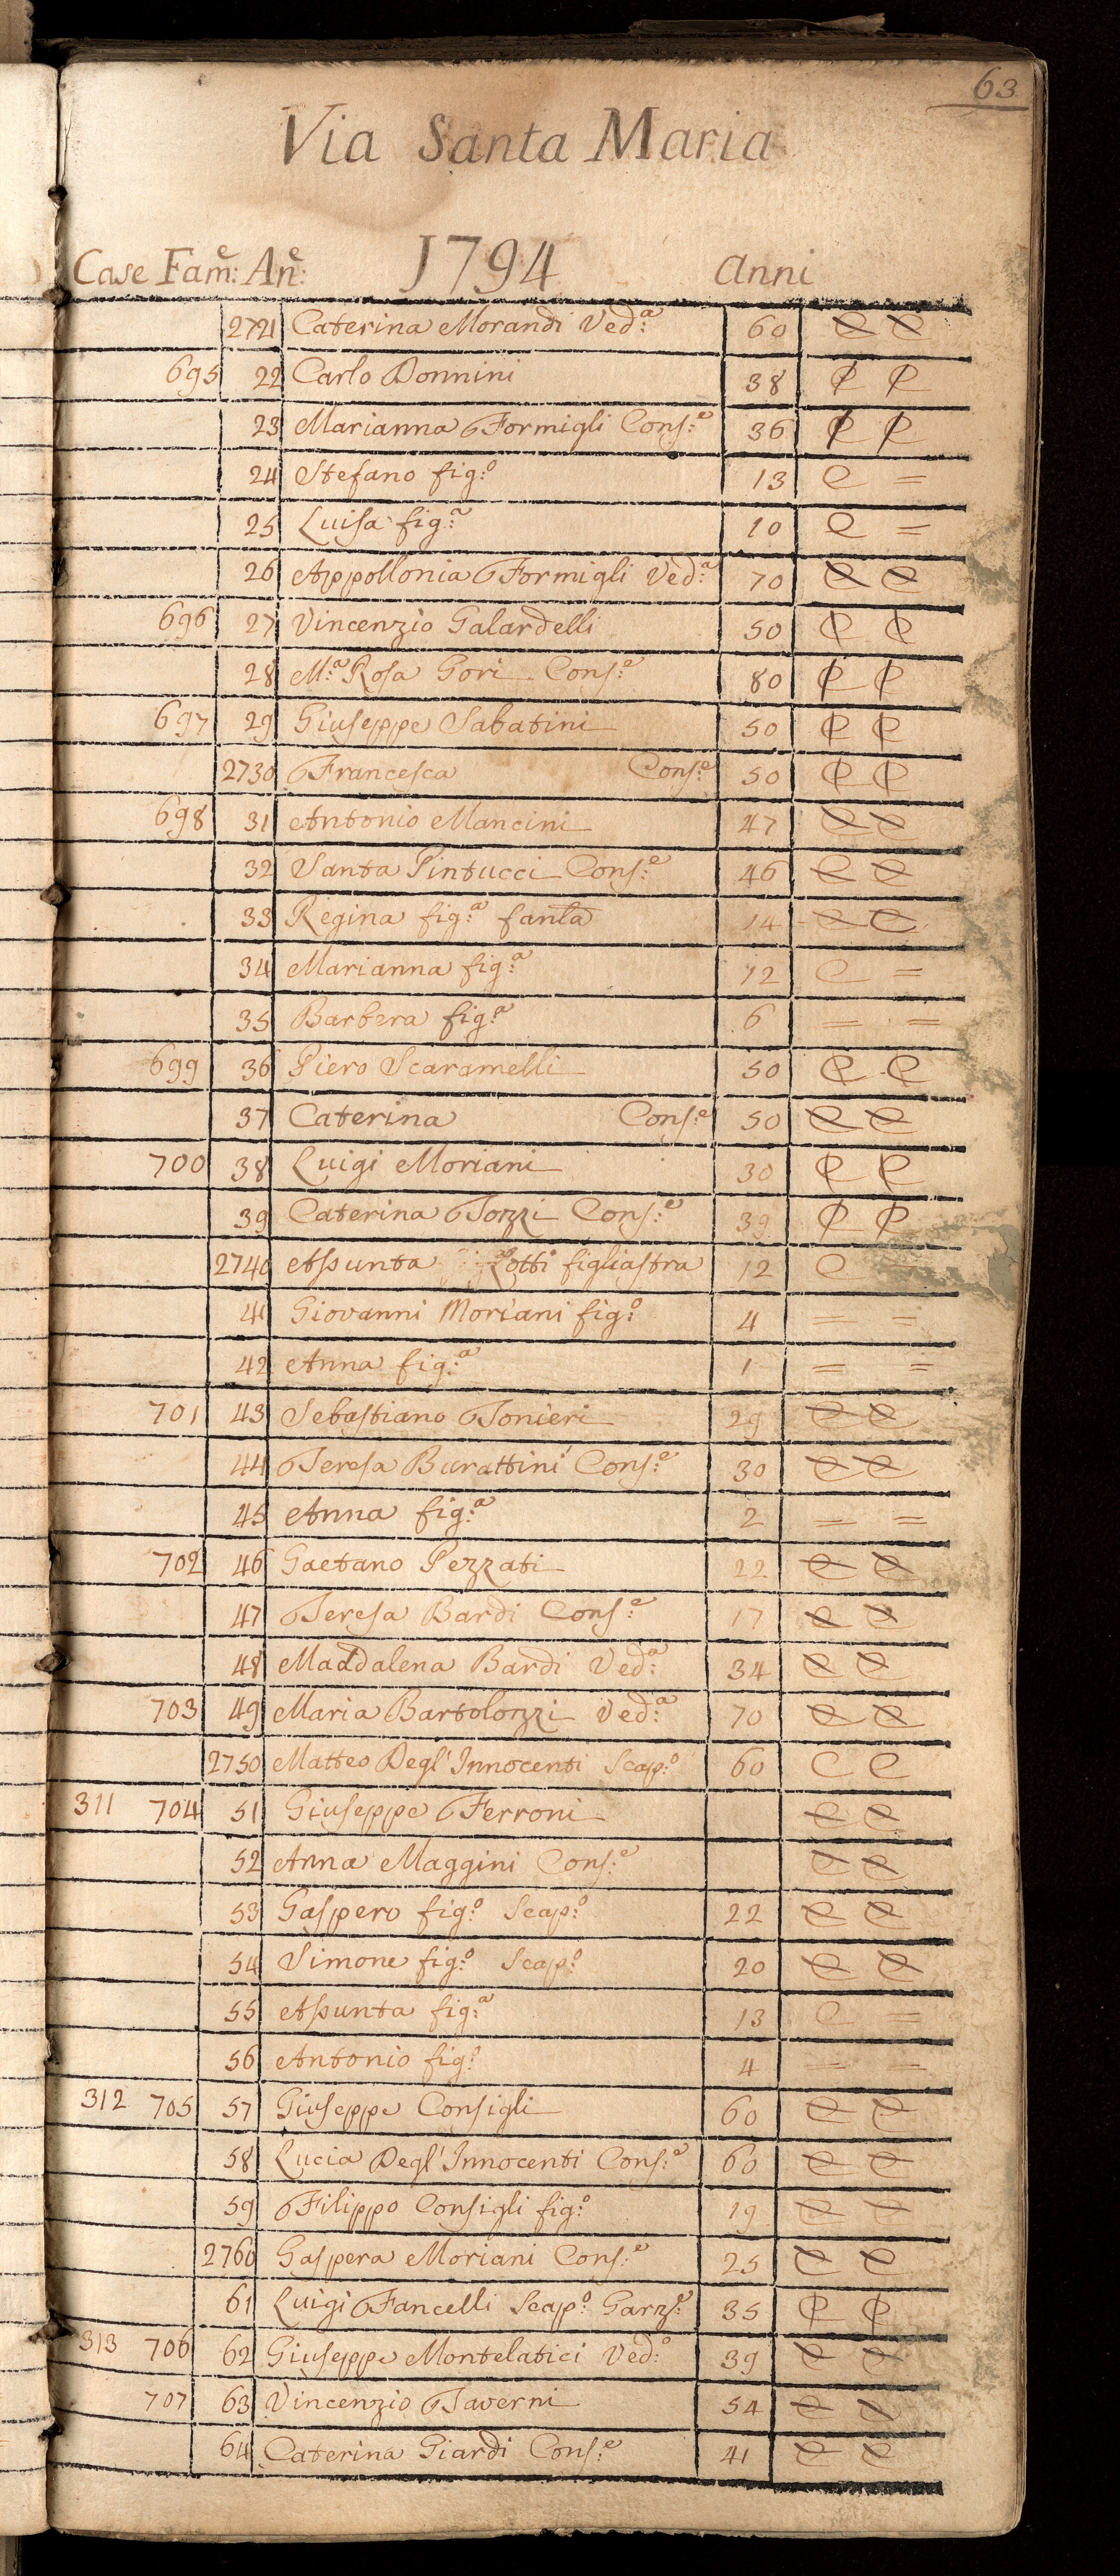 63
Via Santa Maria
Case Fam:e An:e 1794 Anni
2721 Caterina Morandi Ved:a 60 e e
695 22 Carlo Donnini 38 e e
23 Marianna Formigli Cons:e 36 e e
24 Stefano fig:o 13 e =
25 Luisa fig:a 10 e =
26 Appollonia Formigli Ved:a 70 e e
696 27 Vincenzio Galardelli 50 e e
28 M:a Rosa Gori Cons:e 80 e e
697 29 Giuseppe Sabatini 50 e e
2730 Francesca Cons:e 50 e e
698 31 Antonio Mancini 47 e e
32 Santa Pintucci Cons:e 46 e e
33 Regina fig:a fanla 14 e e
34 Marianna fig:a 12 e =
35 Barbera fig:a 6 = =
699 36 Piero Scaramelli 50 e e
37 Caterina Cons:e 50 e e
700 38 Luigi Moriani 30 e e
39 Caterina Tozzi Cons:e 39 e e
2740 Assunta figliastra 12 e
41 Giovanni Moriani fig:o 4 = =
42 Anna fig:a 1 = =
701 43 Sebastiano Tonieri 29 e e
44 Teresa Burattini Cons:e 30 e e
45 Anna fig:a 2 = =
702 46 Gaetano Pezzati 22 e e
47 Teresa Bardi Cons:e 17 e e
48 Maddalena Bardi Ved:a 34 e e
703 49 Maria Bartolozzi Ved:a 70 e e
2750 Matteo Degl'Innocenti Scap:o 60 e e
311 704 51 Giuseppe Ferroni e e
52 Anna Maggini Cons:e e e
53 Gaspero fig:o Scap:o 22 e e
54 Simone fig:o Scap:o 20 e e
55 Assunta fig:a 13 e =
56 Antonio fig:o 4 = =
312 705 57 Giuseppe Consigli 60 e e
58 Lucia Degl'Innocenti Cons:e 60 e e
59 Filippo Consigli fig:o 19 e e
2760 Gaspera Moriani Cons:e 25 e e
61 Luigi Fancelli Scap:o Garz:e 35 e e
313 706 62 Giuseppe Montelatici Ved:o 39 e e
707 63 Vincenzio Taverni 54 e e
64 Caterina Giardi Cons:e 41 e e